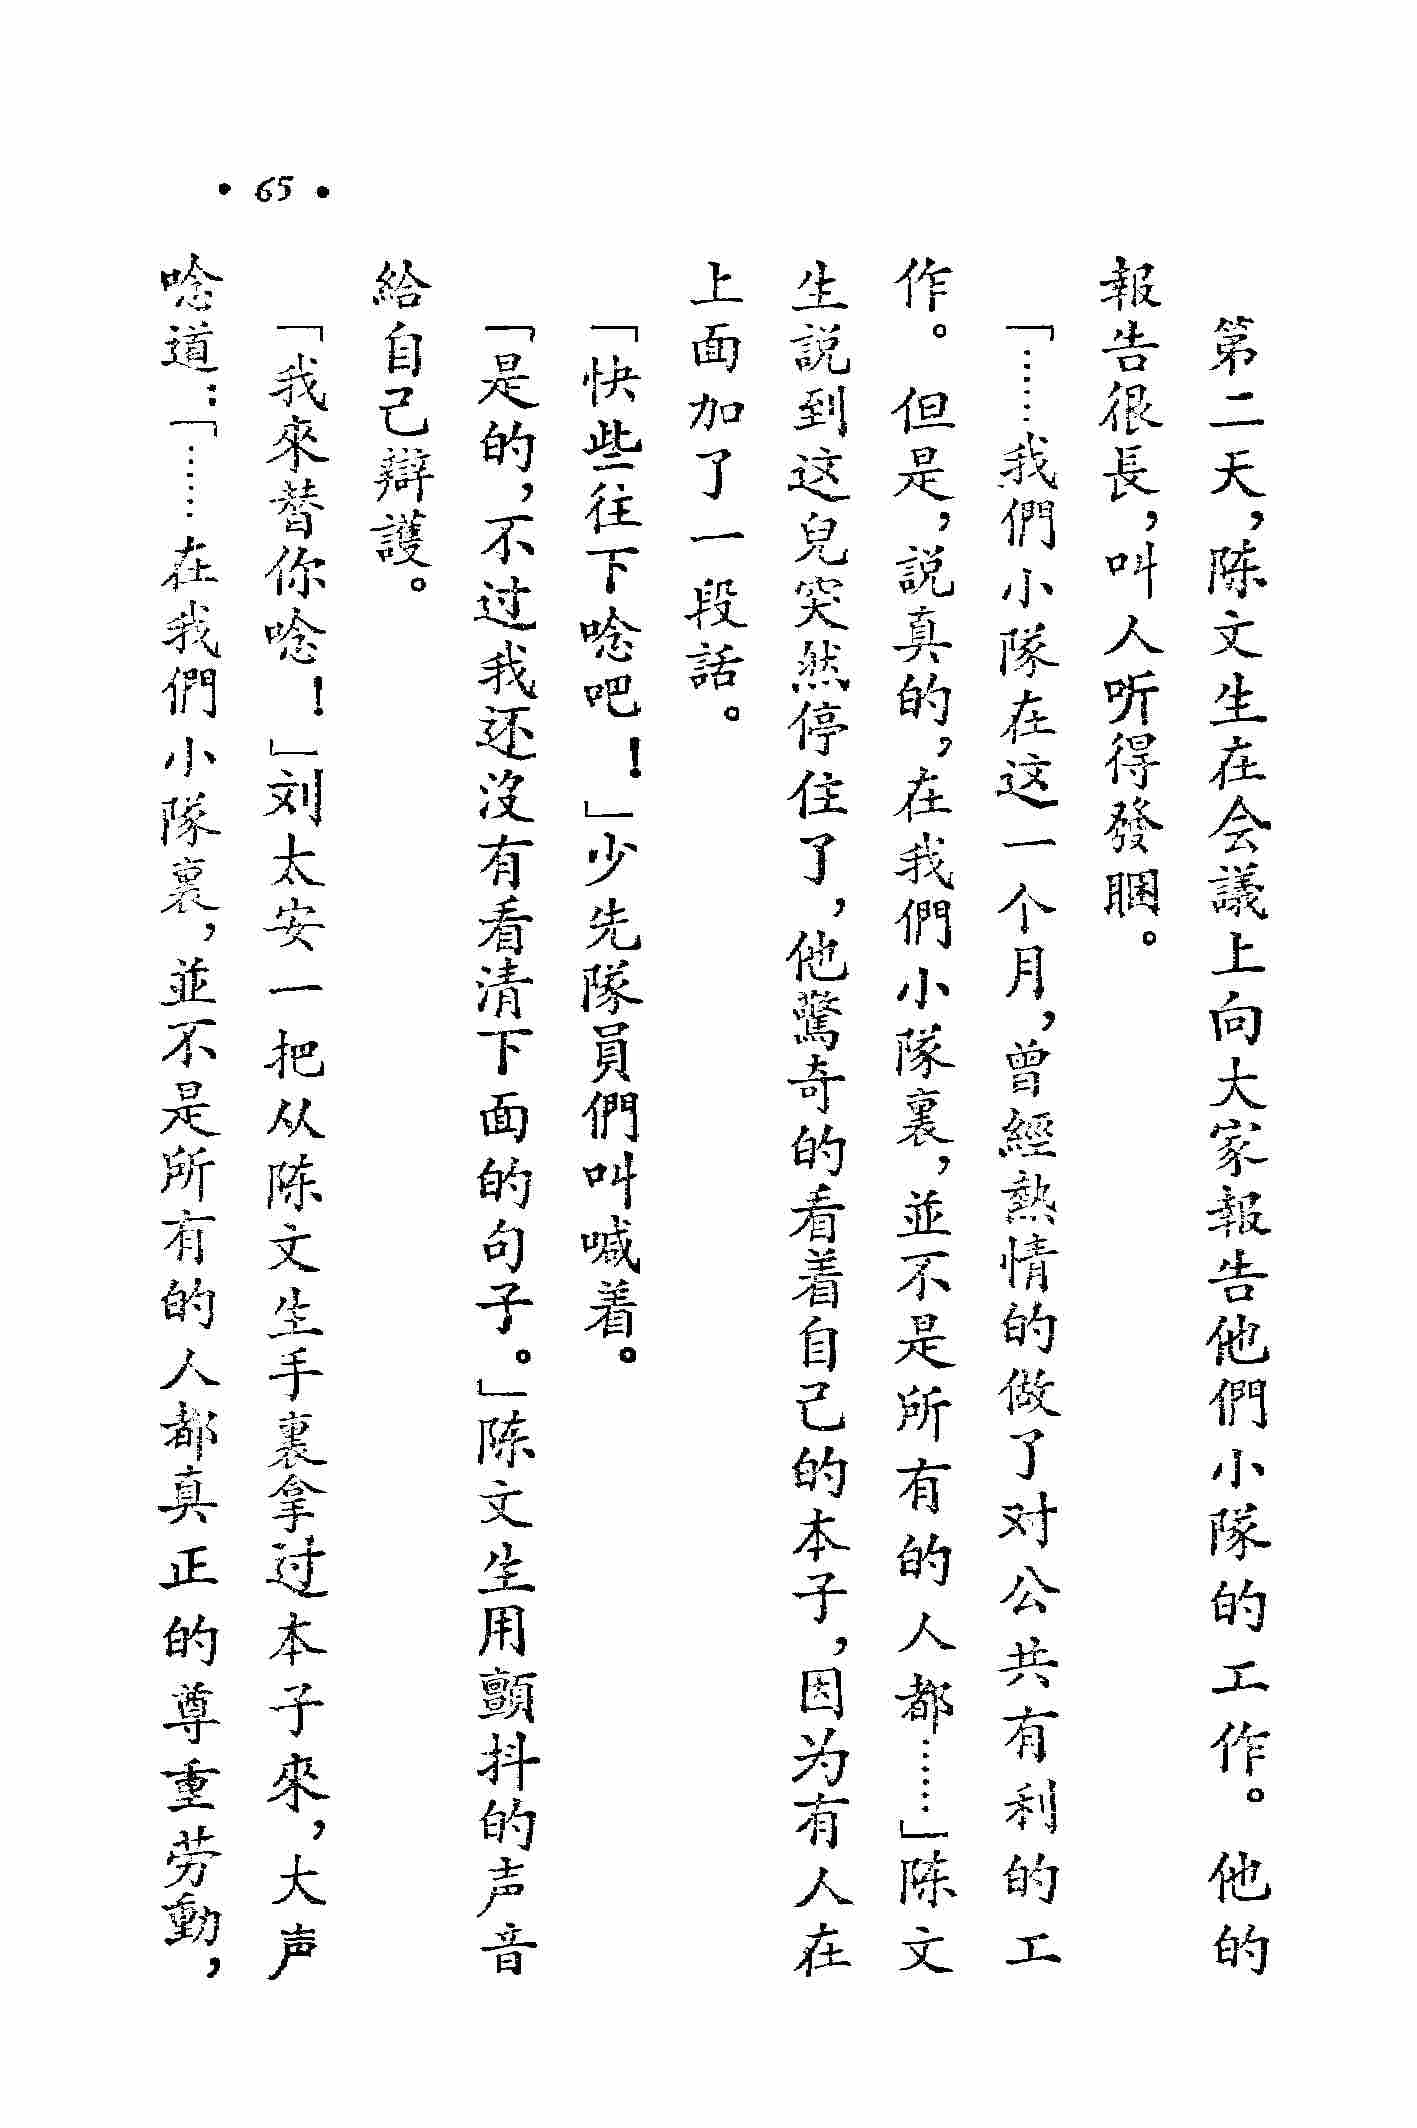 第二天，陈文生在会議上向大家報告他們小隊的工作。他的
報告很長，叫人听得發睏。
「……我們小隊在这一个月，曾經熱情的做了对公共有利的工
作。但是，説真的，在我們小隊裏，並不是所有的人都……」陈文
生説到这兒突然停住了，他驚奇的看着自己的本子，因为有人在
上面加了一段話。
「快些往下唸吧！」少先隊員們叫喊着。
「是的，不过我还沒有看清下面的句子。」陈文生用顫抖的声音
給自己辯護。
「我來替你唸！」刘太安一把从陈文生手裏拿过本子來，大声
唸道：「……在我們小隊裏，並不是所有的人都真正的尊重劳動，
• 65 •